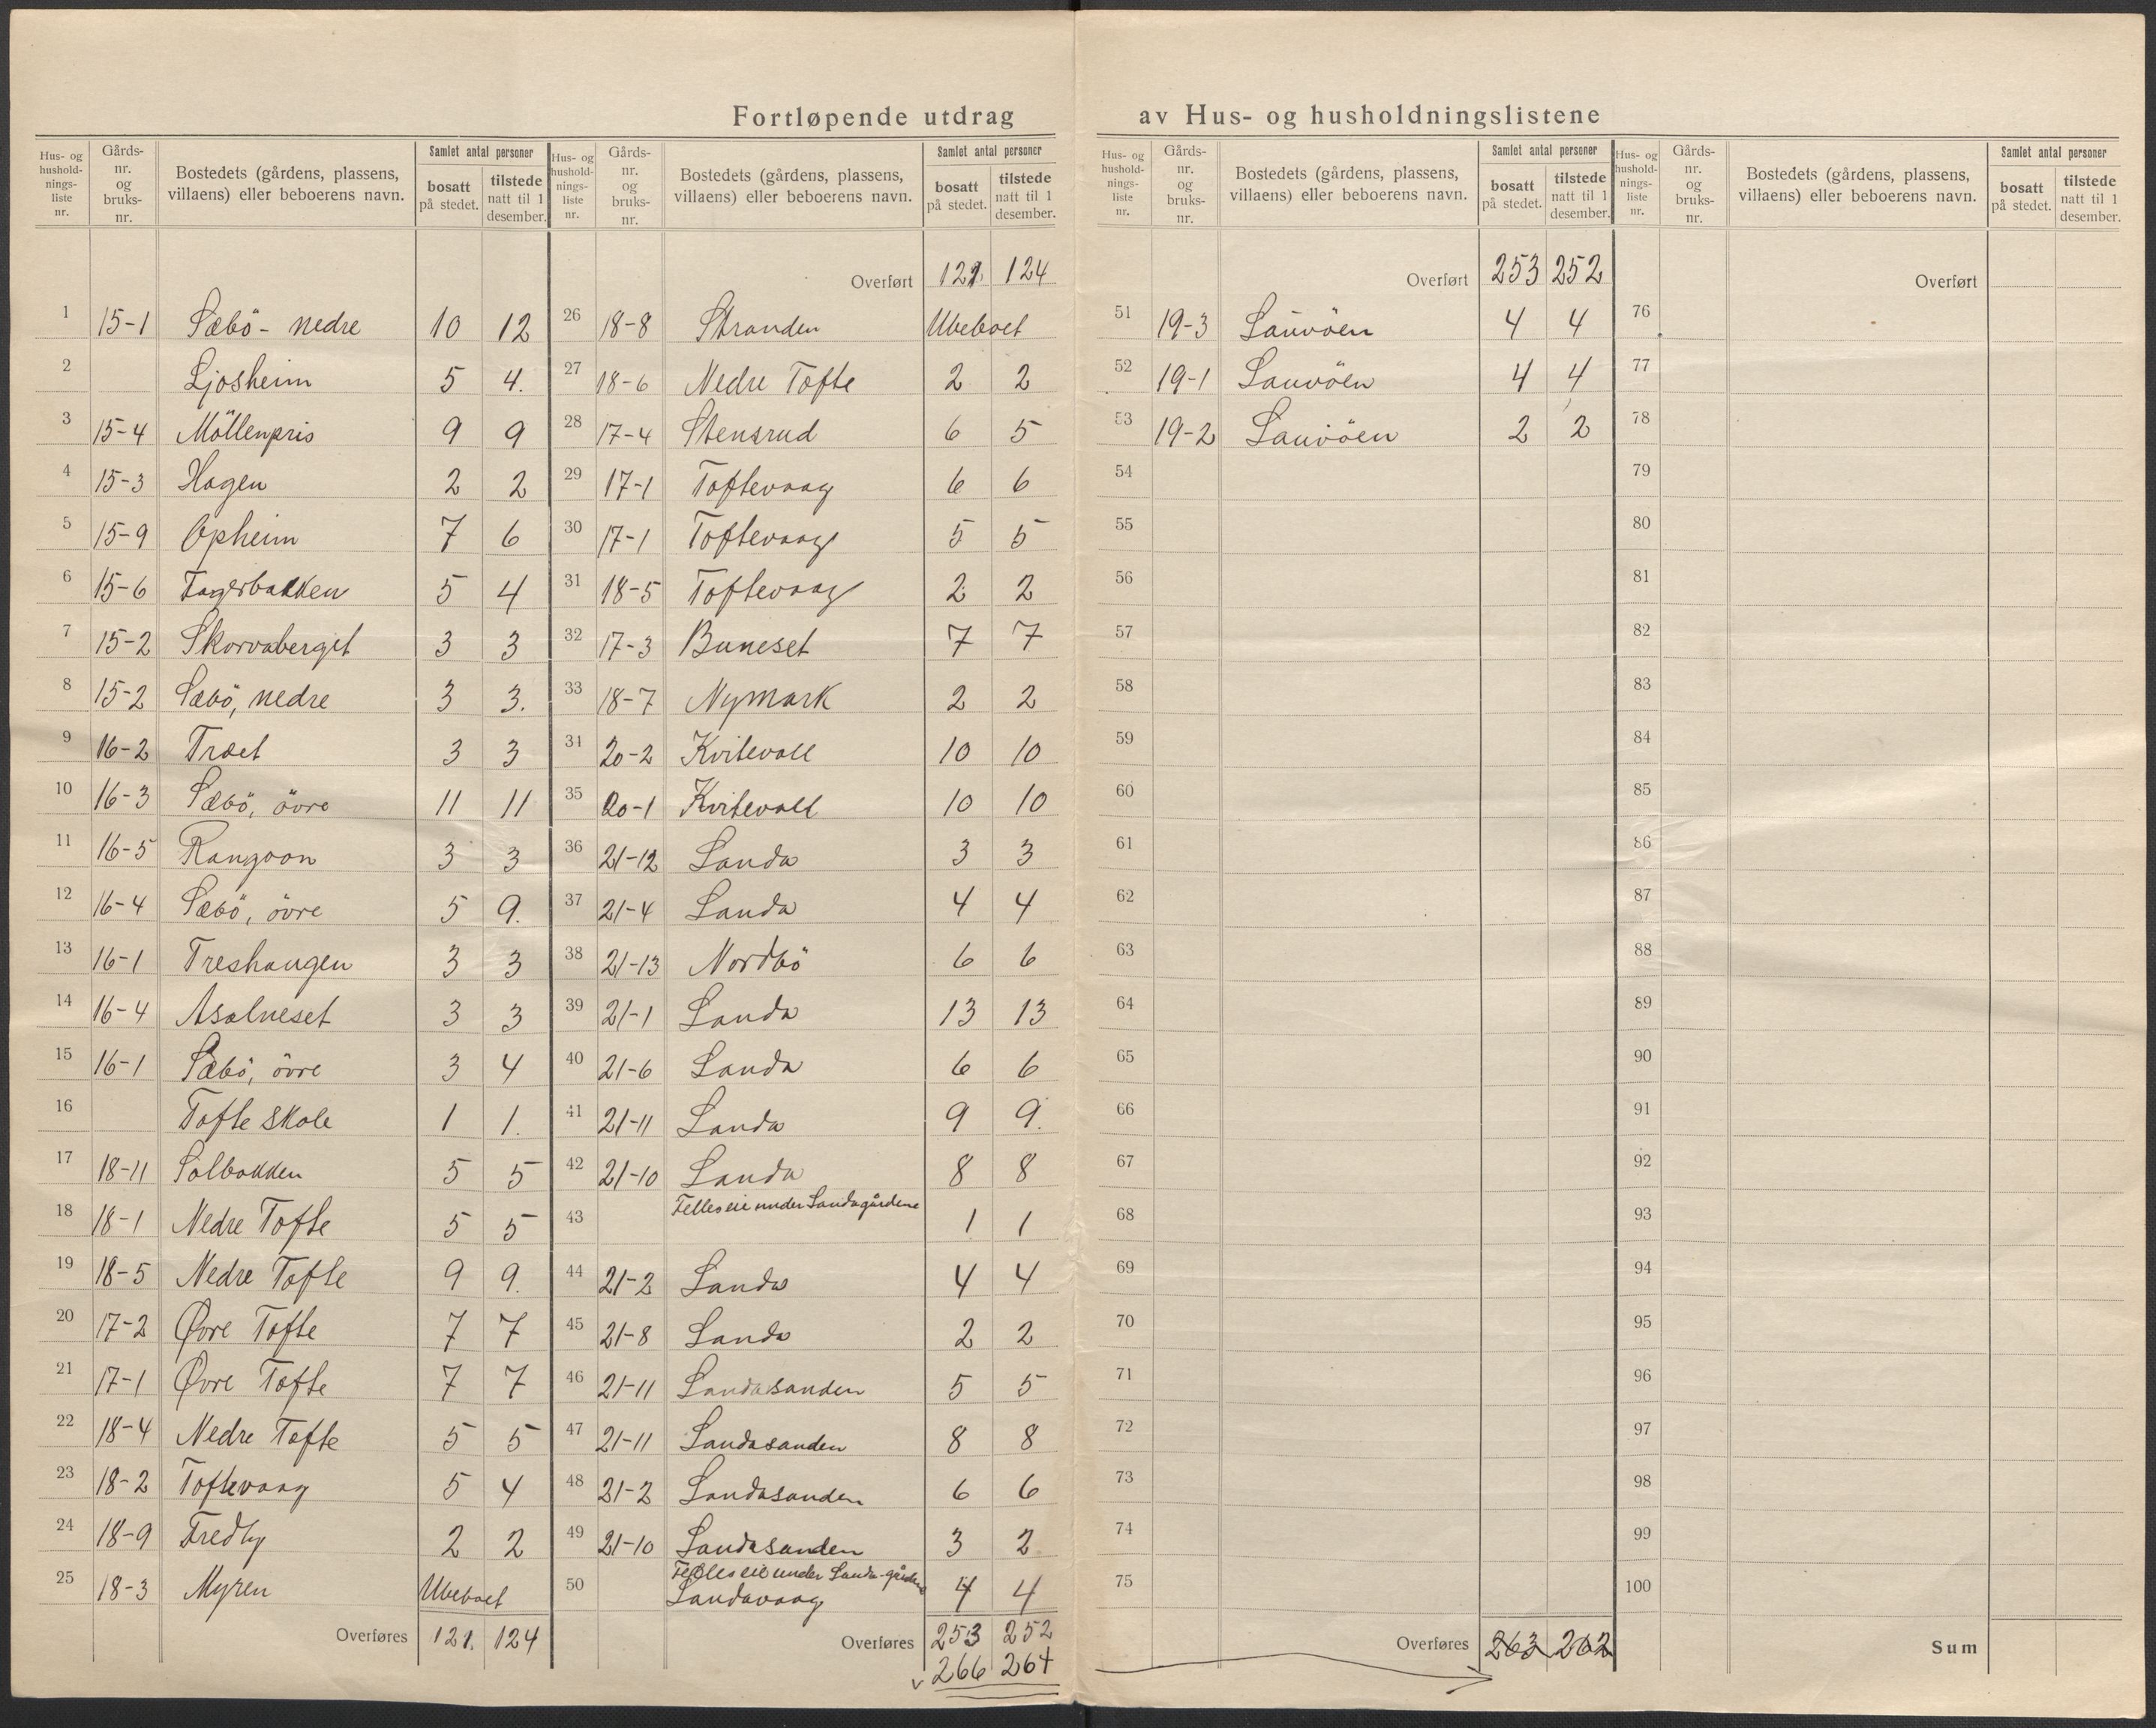 Fortløpende utdrag av Hus- og husholdningslistene
Hus- og hushold- nings- liste nr. | Gårds- nr. og bruks- nr. | Bostedets (gårdens, plassens, villaens) eller beboerens navn. | Samlet antal personer | bosatt på stedet. | tilstede natt til 1 desember.
1 15-1 Sæbö - nedre 10 12
2 Ljosheim 5 4.
3 15-4 Möllenpris 9 9
4 15-3 Hagen 2 2
5 15-9 Opheim 7 6
6 15-6 Fagerbakken 5 4
7 15-2 Skorvaberget 3 3
8 15-2 Sæbö, nedre 3 3.
9 16-2 Træet 3 3
10 16-3 Sæbö, övre 11 11
11 16-5 Rangoon 3 3
12 16-4 Sæbö, övre 5 9.
13 16-1 Treshaugen 3 3
14 16-4 Asalneset 3 3
15 16-1 Sæbö, övre 3 4
16 Tofte skole 1 1.
17 18-11 Solbakken 5 5
18 18-1 Nedre Tofte 5 5
19 18-5 Nedre Tofte 9 9.
20 17-2 Øvre Tofte 7 7
21 17-1 Øvre Tofte 7 7
22 18-4 Nedre Tofte 5 5
23 18-2 Toftevaag 5 4
24 18-9 Fredly 2 2
25 18-3 Myren Ubeboet
Overføres 121. 124
Hus- og hushold- nings- liste nr. | Gårds- nr. og bruks- nr. | Bostedets (gårdens, plassens, villaens) eller beboerens navn. | Samlet antal personer | bosatt på stedet. | tilstede natt til 1 desember.
Overført 121. 124
26 18-8 Stranden Ubeboet
27 18-6 Nedre Tofte 2 2
28 17-4 Stensrud 6 5
29 17-1 Toftevaag 6 6
30 17-1 Toftevaag 5 5
31 18-5 Toftevaag 2 2
32 17-3 Buneset 7 7
33 18-7 Nymark 2 2
34 20-2 Kvitevoll 10 10
35 20-1 Kvitevoll 10 10
36 21-12 Landa 3 3
37 21-4 Landa 4 4
38 21-13 Nordbö 6 6
39 21-1 Landa 13 13
40 21-6 Landa 6 6
41 21-11 Landa 9 9.
42 21-10 Landa 8 8
43 Felleseie under Landagårdene 1 1
44 21-2 Landa 4 4
45 21-8 Landa 2 2
46 21-11 Landasanden 5 5
47 21-11 Landasanden 8 8
48 21-2 Landasanden 6 6
49 21-10 Landasanden 3 2
Felleseie under Landa-gårdene
50 Landavaag 4 4
Overføres 253 252
266 264
Hus- og hushold- nings- liste nr. | Gårds- nr. og bruks- nr. | Bostedets (gårdens, plassens, villaens) eller beboerens navn. | Samlet antal personer | bosatt på stedet. | tilstede natt til 1 desember.
Overført 253 252
51 19-3 Lauvöen 4 4
52 19-1 Lauvöen 4 4
53 19-2 Lauvöen 2 2
54
55
56
57
58
59
60
61
62
63
64
65
66
67
68
69
70
71
72
73
74
75
Overføres 263 262
Hus- og hushold- nings- liste nr. | Gårds- nr. og bruks- nr. | Bostedets (gårdens, plassens, villaens) eller beboerens navn. | Samlet antal personer | bosatt på stedet. | tilstede natt til 1 desember.
Overført
76
77
78
79
80
81
82
83
84
85
86
87
88
89
90
91
92
93
94
95
96
97
98
99
100
Sum